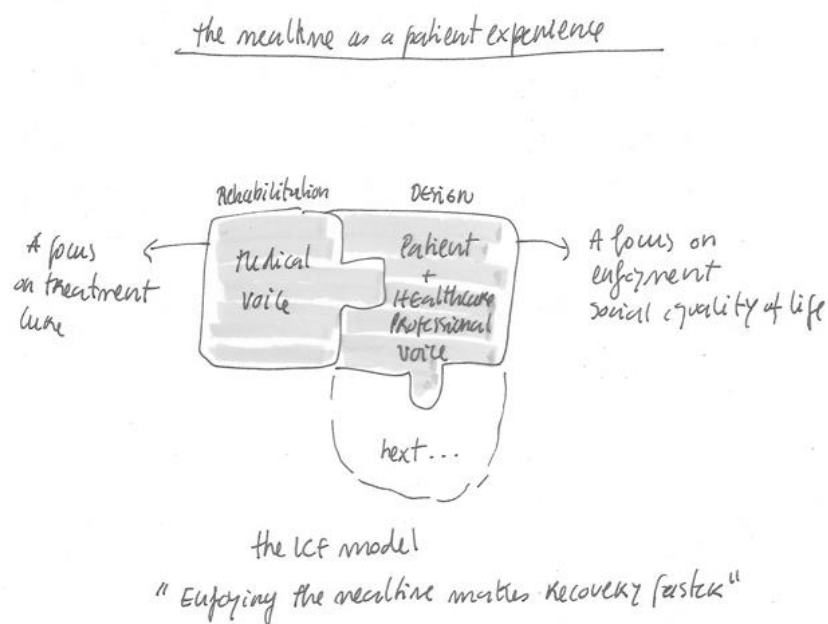 the mealtime as a patient experience
Rehabilitation
Design
A focus
on treatment
cure
Medical
voice
Patient
+
Healthcare
Professional
voice
A focus on
enjoyment
social, quality of life
next...
the ICF model
"Enjoying the mealtime makes recovery faster"